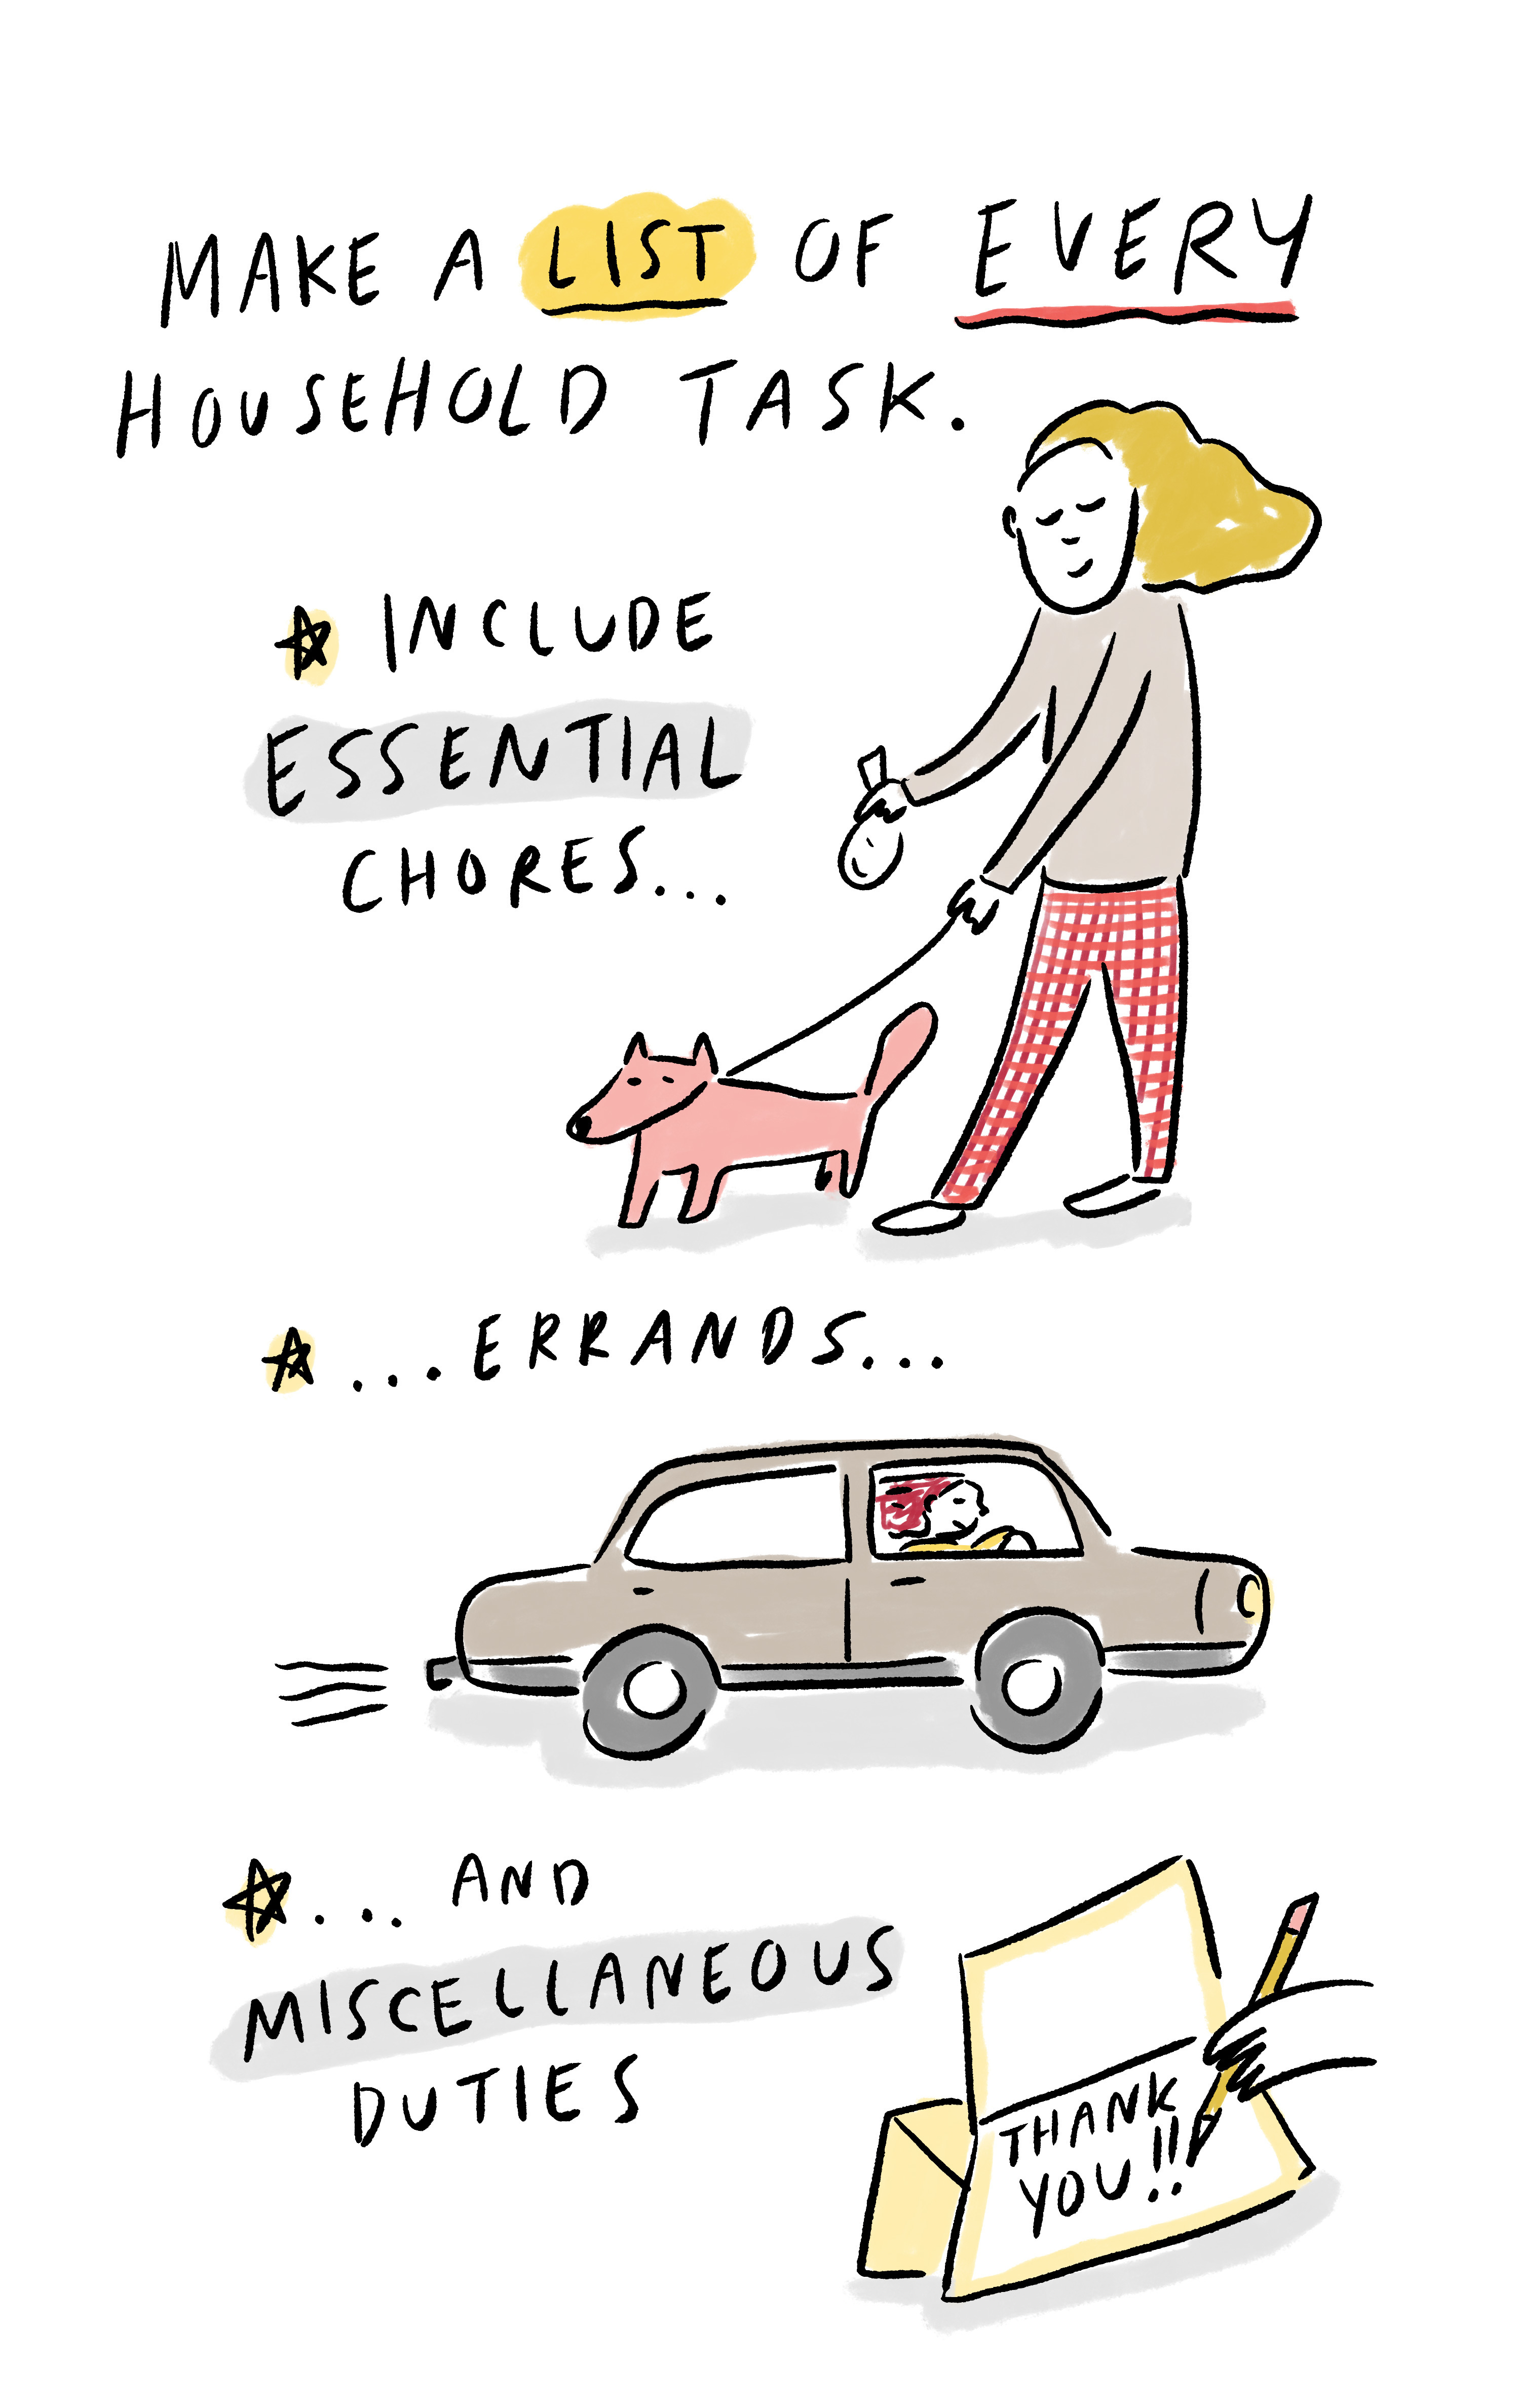 MAKE A LIST OF EVERY
HOUSEHOLD TASK.
INCLUDE
ESSENTIAL
CHORES...
...ERRANDS...
... AND
MISCELLANEOUS
DUTIES
THANK
YOU!!